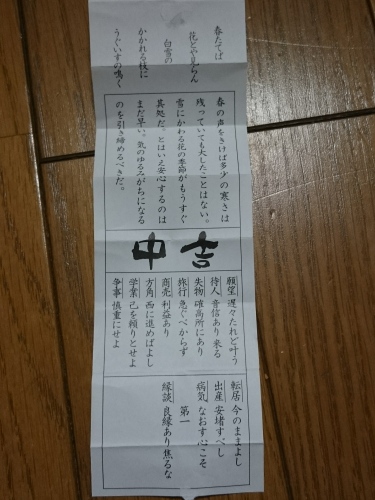 春たてば
花とやみらん
白雪の
かかれる枝に
うぐいすの鳴く
春の声をきけば多少の寒さは
残っていても大したことはない。
雪にかわる花の季節がもうすぐ
其処だ。とはいえ安心するのは
まだ早い。気のゆるみがちになる
のを引き締めるべきだ。
中吉
願望 遅々たれど叶う
待人 音信あり来る
失物 確高所にあり
旅行 急ぐべからず
商売 利益あり
方角 西に進めばよし
学業 己を頼りとせよ
争事 慎重にせよ
転居 今のままよし
出産 安堵すべし
病気 なおす心こそ
第一
縁談 良縁あり焦るな